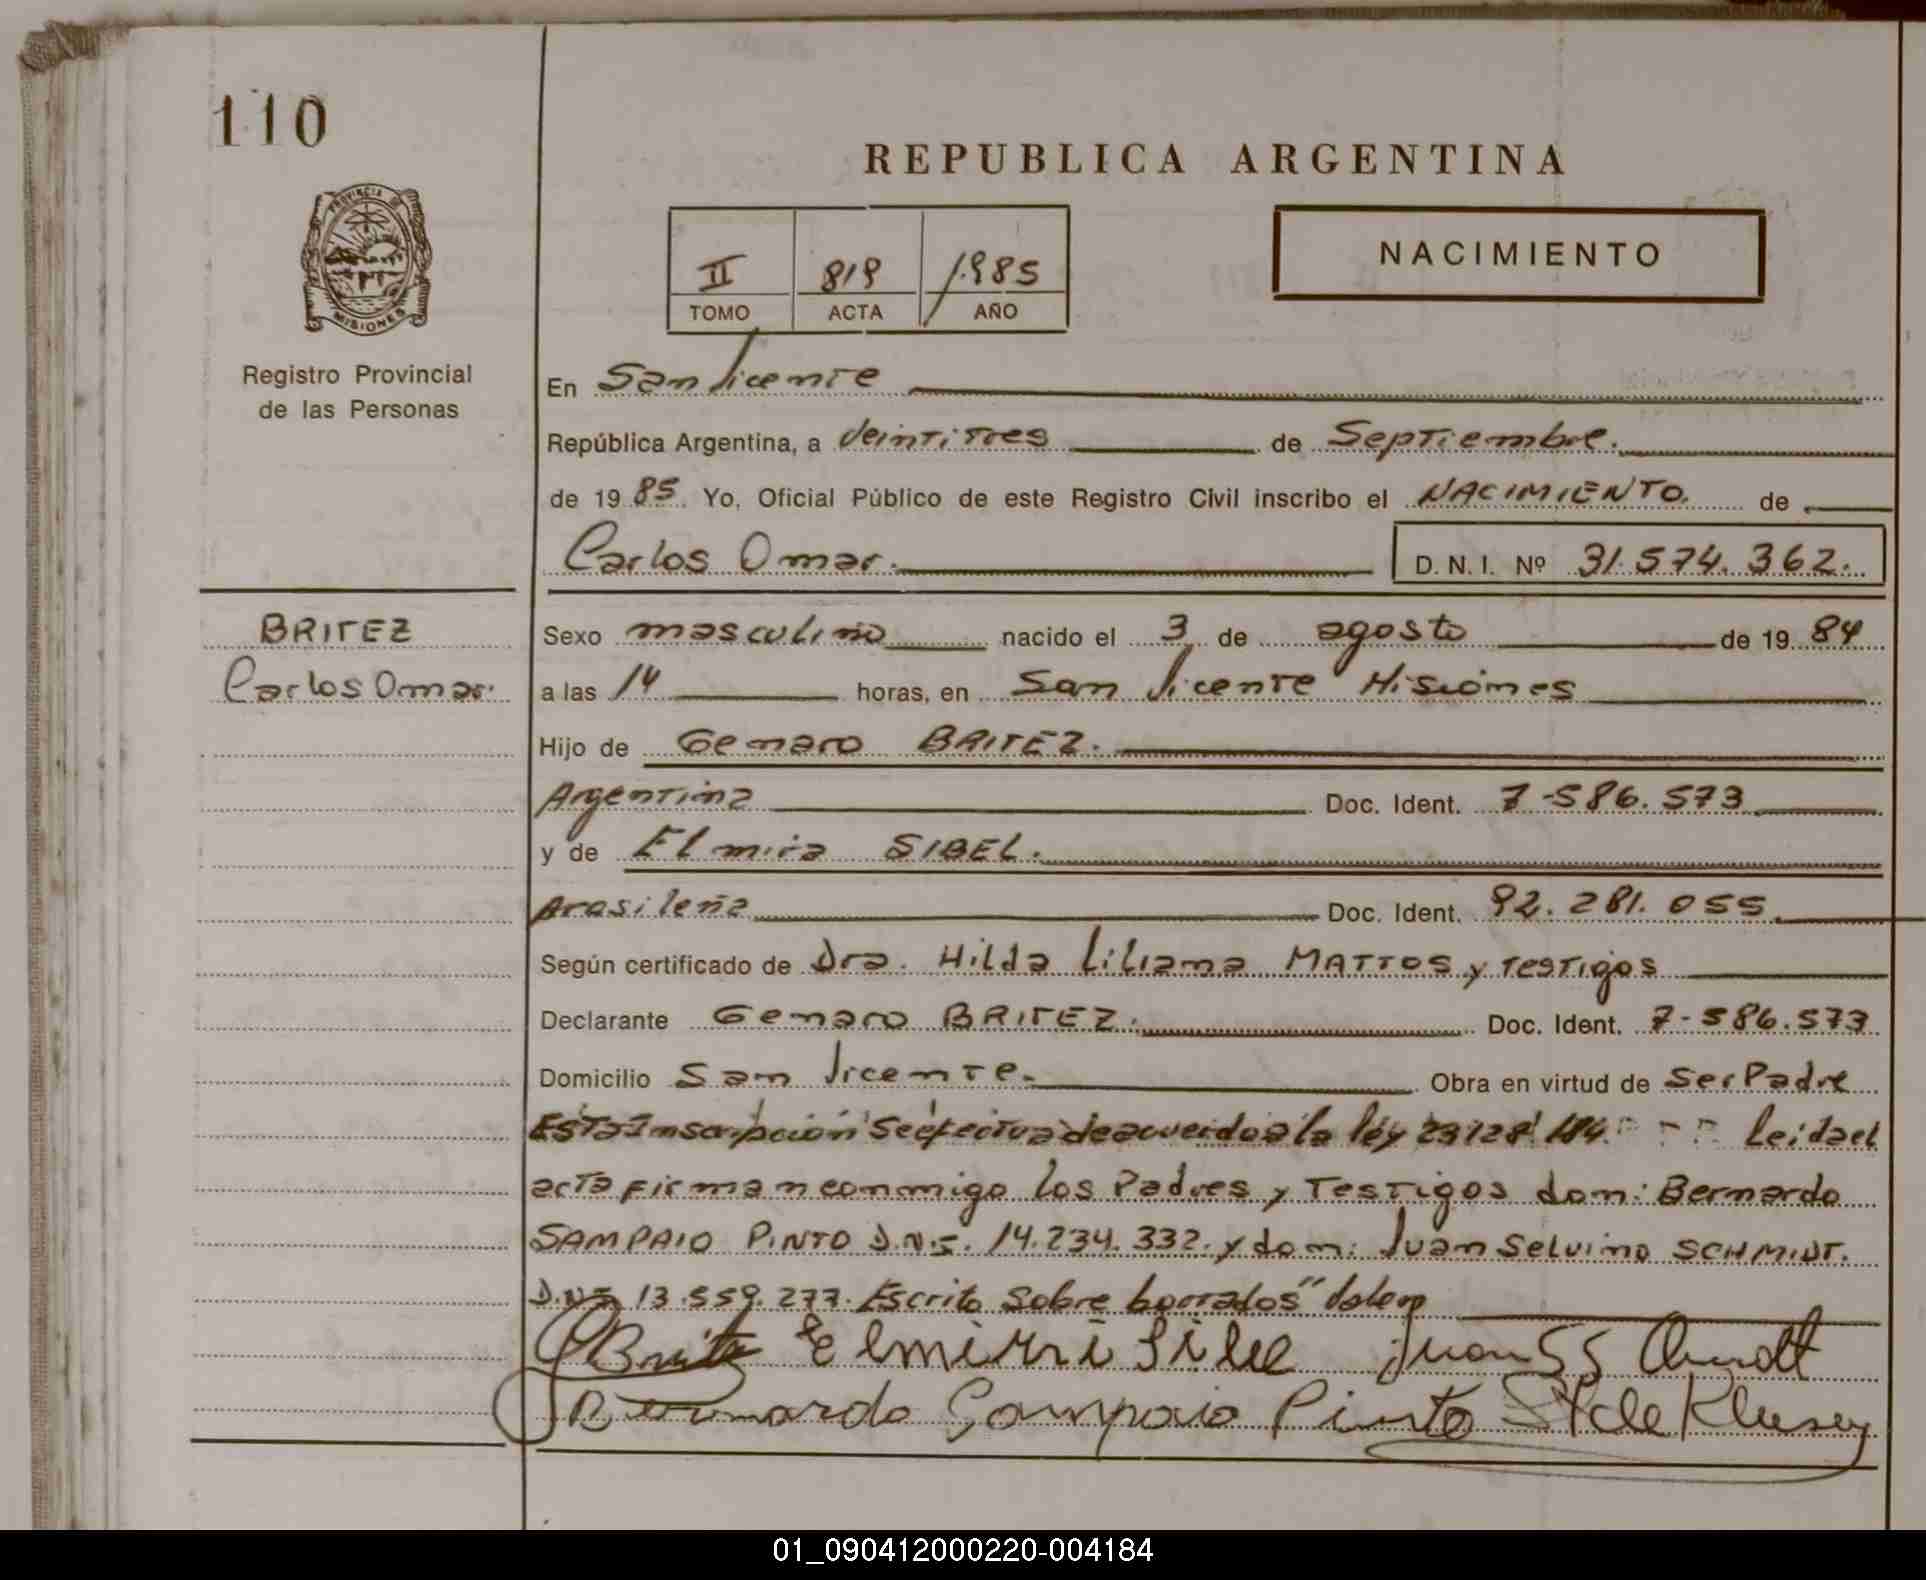 110
REPUBLICA ARGENTINA
PROVINCIA DE
MISIONES
II 819 1985
TOMO ACTA AÑO
NACIMIENTO
Registro Provincial
de las Personas
En San Vicente
República Argentina, a Veintitres de Septiembre.
de 19 85. Yo, Oficial Público de este Registro Civil inscribo el NACIMIENTO. de
Carlos Omar. D. N. I. Nº 31.574.362.
BRITEZ
Carlos Omar.
Sexo masculino nacido el 3 de agosto de 19 84
a las 14 horas, en San Vicente Misiones
Hijo de Genaro BRITEZ.
Argentina Doc. Ident. 7-586.573
y de Elmira SIBEL.
brasileña Doc. Ident. 92.281.055
Según certificado de Dra. Hilda Liliana MATTOS y Testigos
Declarante Genaro BRITEZ. Doc. Ident. 7-586.573
Domicilio San Vicente. Obra en virtud de Ser Padre
Esta Inscripción se efectua de acuerdo a la ley 23128 Leida el
acta firman conmigo los Padres y Testigos don: Bernardo
SAMPAIO PINTO D.N.I. 14.234.332. y don: Juan Selvino SCHMIDT.
D.N.I. 13.559.277. Escrito sobre borrados "
Britez Elmira Juan
Bernardo Sampaio Pinto
01_090412000220-004184